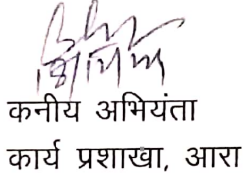 कनीय अभियंता
कार्य प्रशाखा, आरा